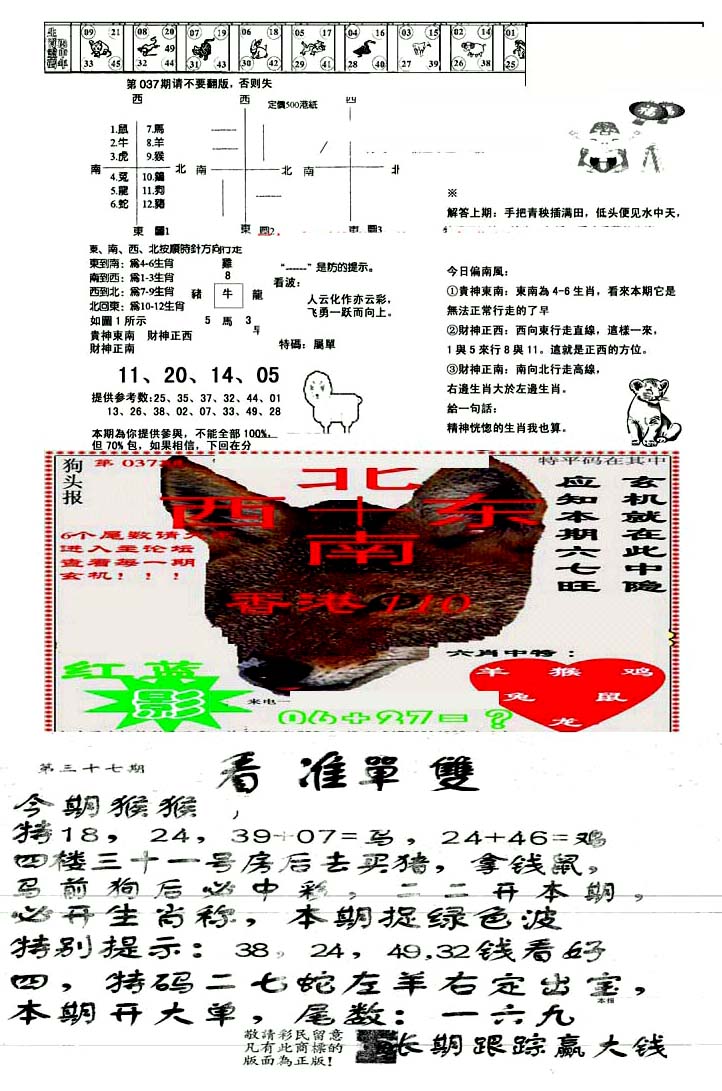 09 21 33 45
08 20 49 32 44
07 19 31 43
06 18 30 42
05 17 29 41
04 16 28 40
03 15 27 39
02 14 26 38
01 25
第037期请不要翻版,否则失
西
西
定價500港紙
1.鼠 7.馬
2.牛 8.羊
3.虎 9.猴
南 北 南 北 南 北
4.兎 10.鷄
5.龍 11.狗
6.蛇 12.豬
東 圖1 東 圖2 東 圖3
※
解答上期:手把青秧插满田,低头便见水中天,
東、南、西、北按順時針方向行走
東到南:為4-6生肖
南到西:為1-3生肖
西到北:為7-9生肖
北回東:為10-12生肖
如圖1所示
貴神東南 財神正西
財神正南
雞
8
豬 牛 龍
5 馬 3
“------”是防的提示。
看波:
人云化作亦云彩,
飞勇一跃而向上。
特碼:屬單
11、20、14、05
提供参考数:25、35、37、32、44、01
13、26、38、02、07、33、49、28
本期為你提供參與,不能全部100%,
但70%包,如果相信,下回在分
今日偏南風:
①貴神東南:東南為4-6生肖,看來本期它是
無法正常行走的了早
②財神正西:西向東行走直線,這樣一來,
1與5來行8與11。這就是正西的方位。
③財神正南:南向北行走高線,
右邊生肖大於左邊生肖。
給一句話:
精神恍惚的生肖我也算。
狗头报
第 037
北
西十东
南
香港 110
特平码在其中
玄机就在此中隐
应知本期六七旺
6个尾数请
进入主论坛
查看每一期
玄机!!!
六肖中特:
羊 猴 鸡
兔 鼠
龙
红 蓝
影
来电一
06+27=?
第三十七期
看準單雙
今期猴猴,
特18,24,39+07=马,24+46=鸡
四楼三十一号房后去买猪,拿钱鼠,
马前狗后必中彩,二二开本期,
必开生肖称,本期捉绿色波
特别提示:38,24,49,32钱看好
四,特码二七蛇左羊右定出宝,
本期开大单,尾数:一六九
本报
敬請彩民留意
凡有此商標的
版面為正版!
长期跟踪赢大钱